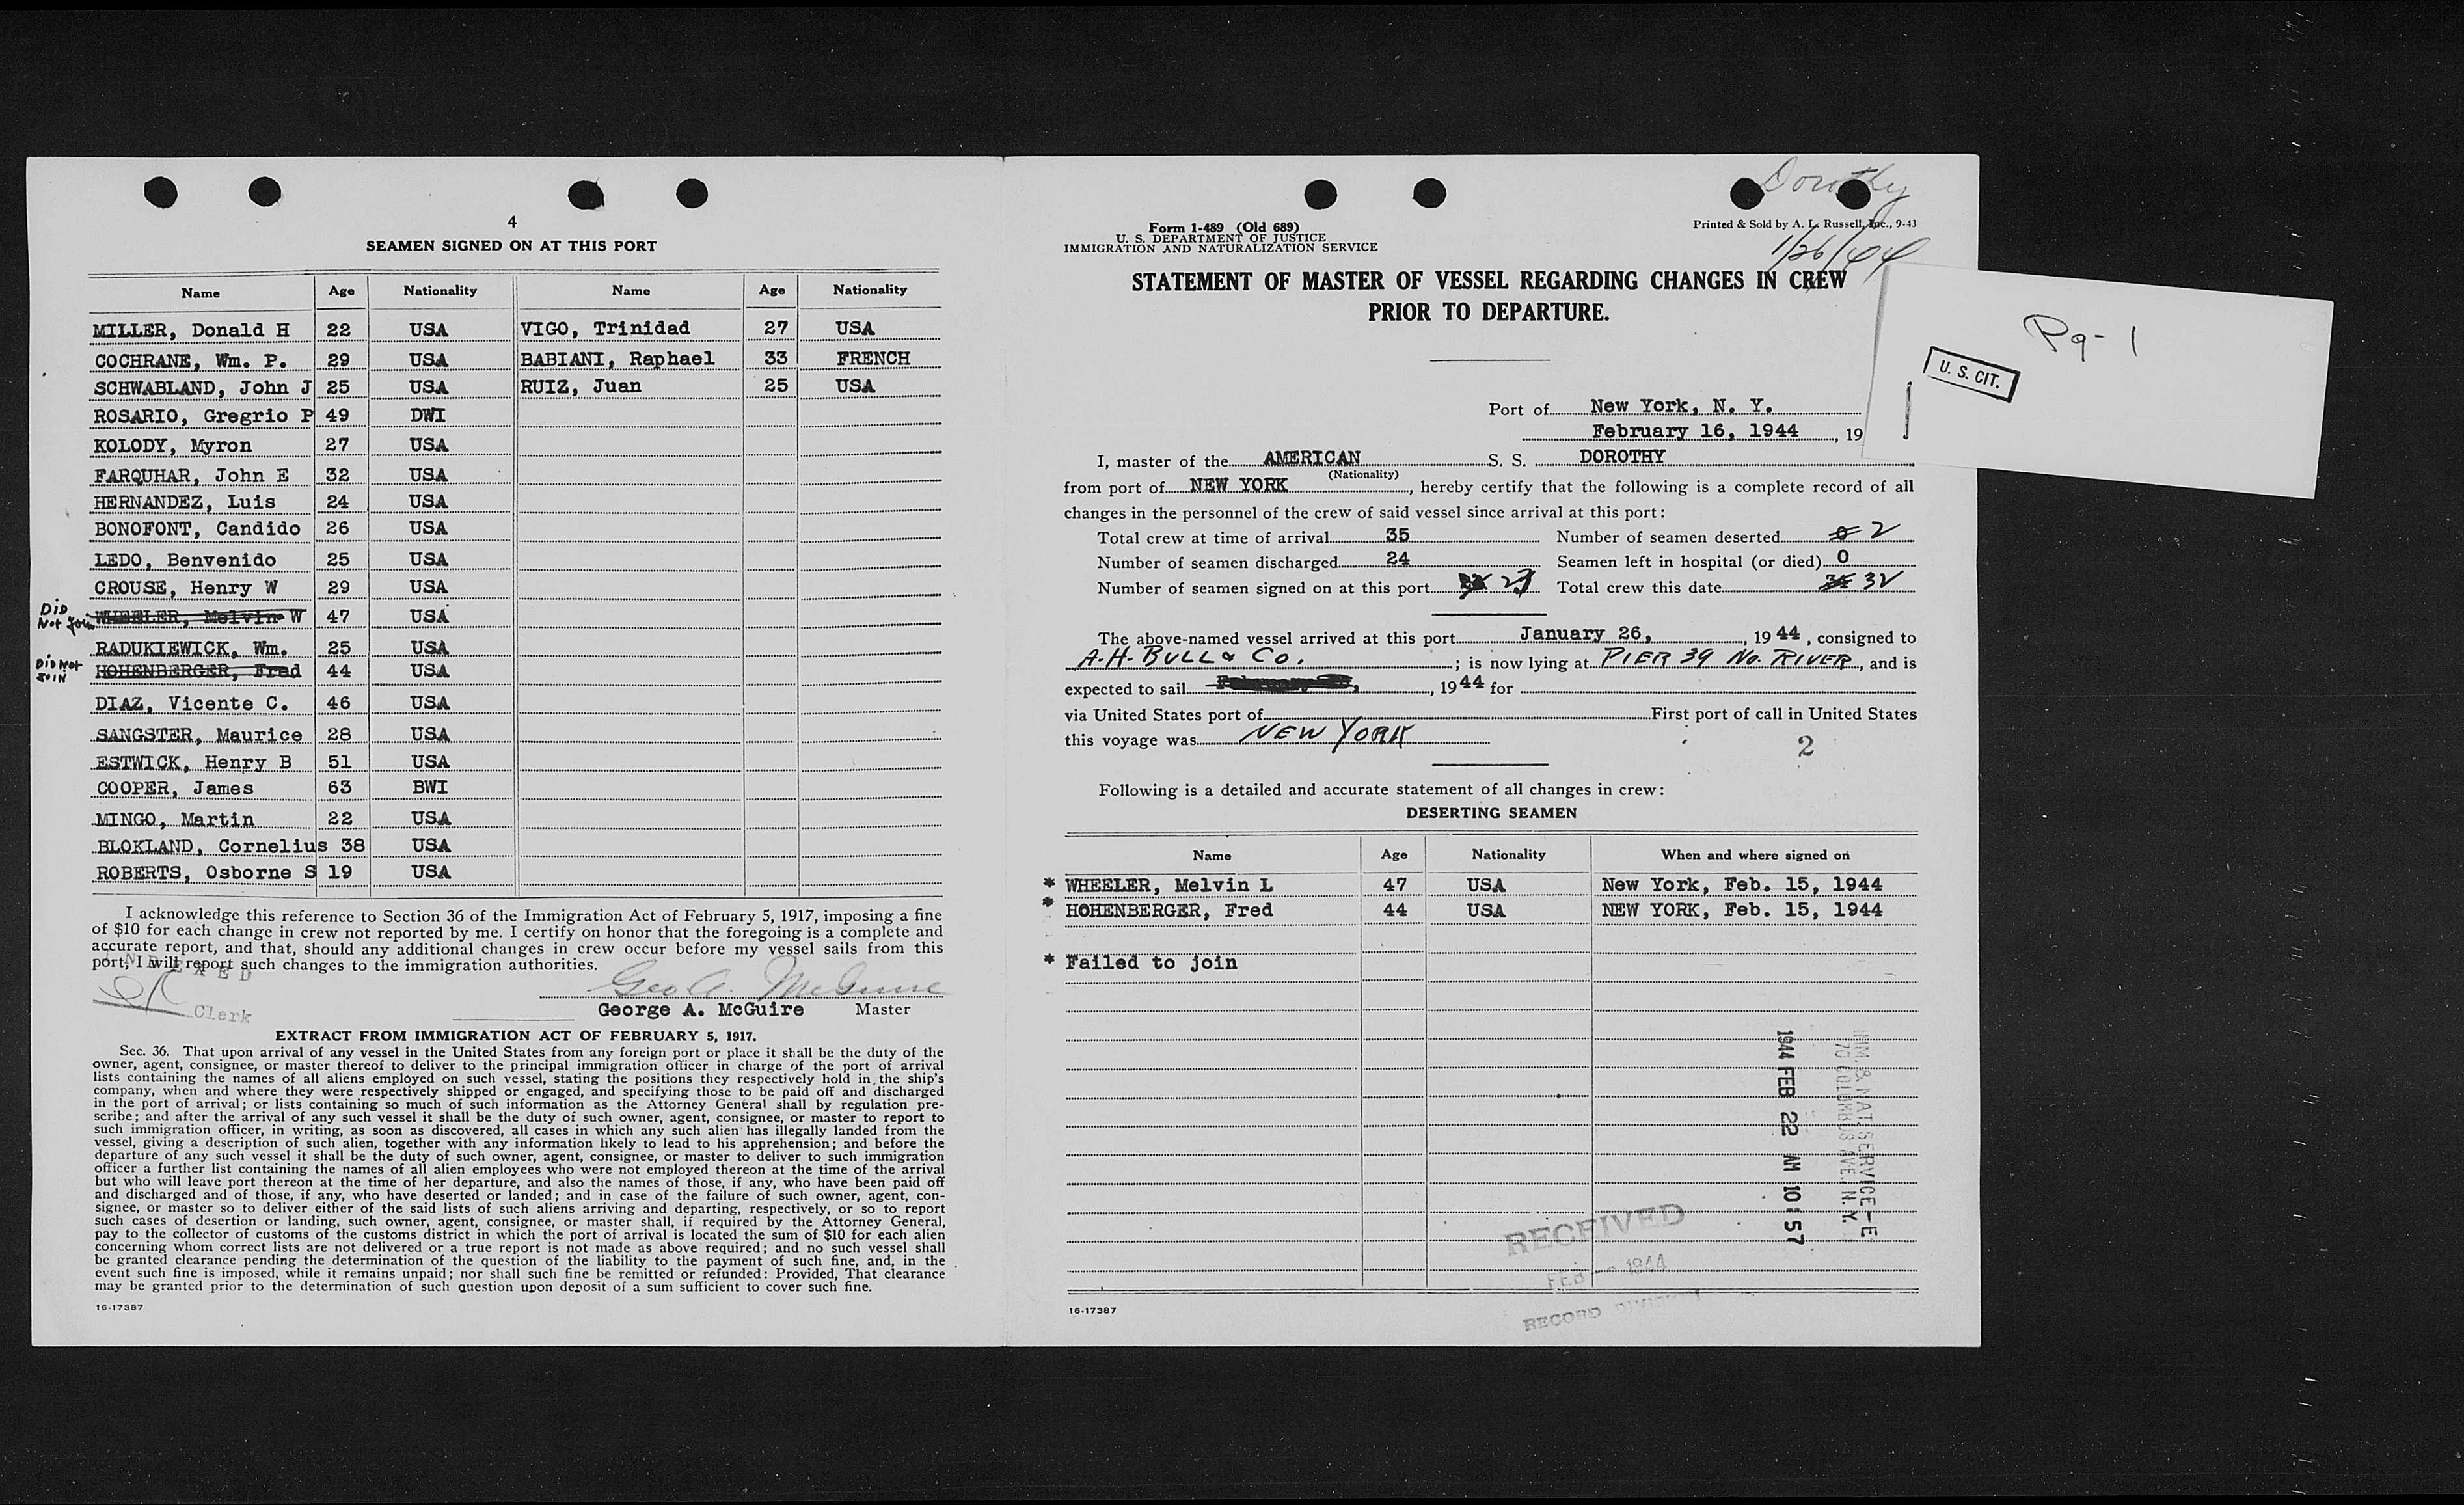 4
SEAMEN SIGNED ON AT THIS PORT
Name Age Nationality Name Age Nationality
MILLER, Donald H 22 USA VIGO, Trinidad 27 USA
COCHRANE, Wm. P. 29 USA BABIANI, Raphael 33 FRENCH
SCHWABLAND, John J 25 USA RUIZ, Juan 25 USA
ROSARIO, Gregrio P 49 DWI
KOLODY, Myron 27 USA
FARQUHAR, John E 32 USA
HERNANDEZ, Luis 24 USA
BONOFONT, Candido 26 USA
LEDO, Benvenido 25 USA
CROUSE, Henry W 29 USA
DID Not Join WHEELER, Melvin W 47 USA
RADUKIEWICK, Wm. 25 USA
DID NOT JOIN HOHENBERGER, Fred 44 USA
DIAZ, Vicente C. 46 USA
SANGSTER, Maurice 28 USA
ESTWICK, Henry B 51 USA
COOPER, James 63 BWI
MINGO, Martin 22 USA
BLOKLAND, Cornelius 38 USA
ROBERTS, Osborne S 19 USA
I acknowledge this reference to Section 36 of the Immigration Act of February 5, 1917, imposing a fine
of $10 for each change in crew not reported by me. I certify on honor that the foregoing is a complete and
accurate report, and that, should any additional changes in crew occur before my vessel sails from this
port, I will report such changes to the immigration authorities.
INDEXED
Clerk
Geo A. McGuire
George A. McGuire Master
EXTRACT FROM IMMIGRATION ACT OF FEBRUARY 5, 1917.
Sec. 36. That upon arrival of any vessel in the United States from any foreign port or place it shall be the duty of the
owner, agent, consignee, or master thereof to deliver to the principal immigration officer in charge of the port of arrival
lists containing the names of all aliens employed on such vessel, stating the positions they respectively hold in the ship's
company, when and where they were respectively shipped or engaged, and specifying those to be paid off and discharged
in the port of arrival; or lists containing so much of such information as the Attorney General shall by regulation pre-
scribe; and after the arrival of any such vessel it shall be the duty of such owner, agent, consignee, or master to report to
such immigration officer, in writing, as soon as discovered, all cases in which any such alien has illegally landed from the
vessel, giving a description of such alien, together with any information likely to lead to his apprehension; and before the
departure of any such vessel it shall be the duty of such owner, agent, consignee, or master to deliver to such immigration
officer a further list containing the names of all alien employees who were not employed thereon at the time of the arrival
but who will leave port thereon at the time of her departure, and also the names of those, if any, who have been paid off
and discharged and of those, if any, who have deserted or landed; and in case of the failure of such owner, agent, con-
signee, or master so to deliver either of the said lists of such aliens arriving and departing, respectively, or so to report
such cases of desertion or landing, such owner, agent, consignee, or master shall, if required by the Attorney General,
pay to the collector of customs of the customs district in which the port of arrival is located the sum of $10 for each alien
concerning whom correct lists are not delivered or a true report is not made as above required; and no such vessel shall
be granted clearance pending the determination of the question of the liability to the payment of such fine, and, in the
event such fine is imposed, while it remains unpaid; nor shall such fine be remitted or refunded: Provided, That clearance
may be granted prior to the determination of such question upon deposit of a sum sufficient to cover such fine.
16-17387
Dorothy
1/26/44
Form 1-489 (Old 689)
U. S. DEPARTMENT OF JUSTICE
IMMIGRATION AND NATURALIZATION SERVICE
Printed & Sold by A. L. Russell, Inc., 9-43
STATEMENT OF MASTER OF VESSEL REGARDING CHANGES IN CREW
PRIOR TO DEPARTURE.
Pg-1
U. S. CIT.
Port of New York, N. Y.
February 16, 1944, 19
I, master of the AMERICAN S. S. DOROTHY
(Nationality)
from port of NEW YORK, hereby certify that the following is a complete record of all
changes in the personnel of the crew of said vessel since arrival at this port:
Total crew at time of arrival 35 Number of seamen deserted 0 2
Number of seamen discharged 24 Seamen left in hospital (or died) 0
Number of seamen signed on at this port 23 Total crew this date 32
The above-named vessel arrived at this port January 26, 1944, consigned to
A.H. BULL & CO.; is now lying at PIER 39 No. RIVER, and is
expected to sail, 1944 for
via United States port of First port of call in United States
this voyage was NEW YORK
2
Following is a detailed and accurate statement of all changes in crew:
DESERTING SEAMEN
Name Age Nationality When and where signed on
* WHEELER, Melvin L 47 USA New York, Feb. 15, 1944
* HOHENBERGER, Fred 44 USA NEW YORK, Feb. 15, 1944
* Failed to join
IMM. & NAT. SERVICE-E
70 COLUMBUS AVE. N. Y.
1944 FEB 22 AM 10:57
RECEIVED
FEB 1944
RECORD DIVISION
16-17387